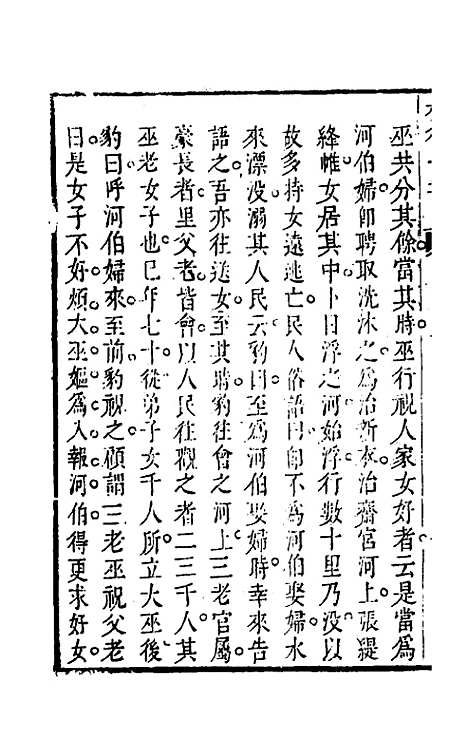 巫共分其餘當其時巫行視人家女好者云是當爲
河伯婦卽聘取洗沐之爲治新衣治齋宮河上張緹
絳帷女居其中卜日浮之河始浮行數十里乃沒以
故多持女遠逃亡民人俗語曰卽不爲河伯娶婦水
來漂沒溺其人民云豹曰至爲河伯娶婦時幸來告
語之吾亦往送女至其時豹往會之河上三老官屬
豪長者里父老皆會以人民往觀之者二三千人其
巫老女子也已年七十從弟子女千人所立大巫後
豹曰呼河伯婦來至前豹視之顧謂三老巫祝父老
曰是女子不好煩大巫嫗爲入報河伯得更求好女